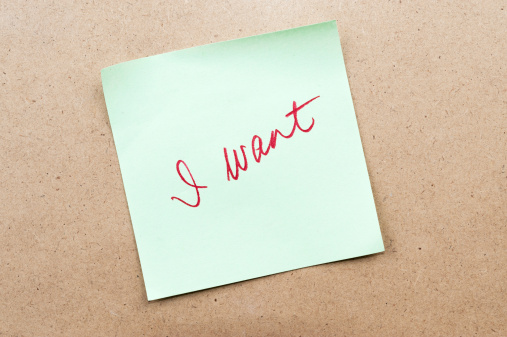 I want